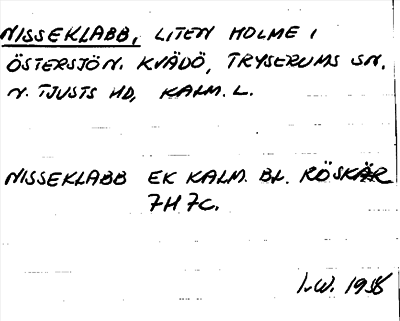 NISSEKLABB, LITEN HOLME I
ÖSTERSJÖN. KVÄDÖ, TRYSERUMS SN,
N. TJUSTS HD, KALM. L.
NISSEKLABB EK KALM. BL. RÖSKÄR
7H 7C.
I.W. 1958